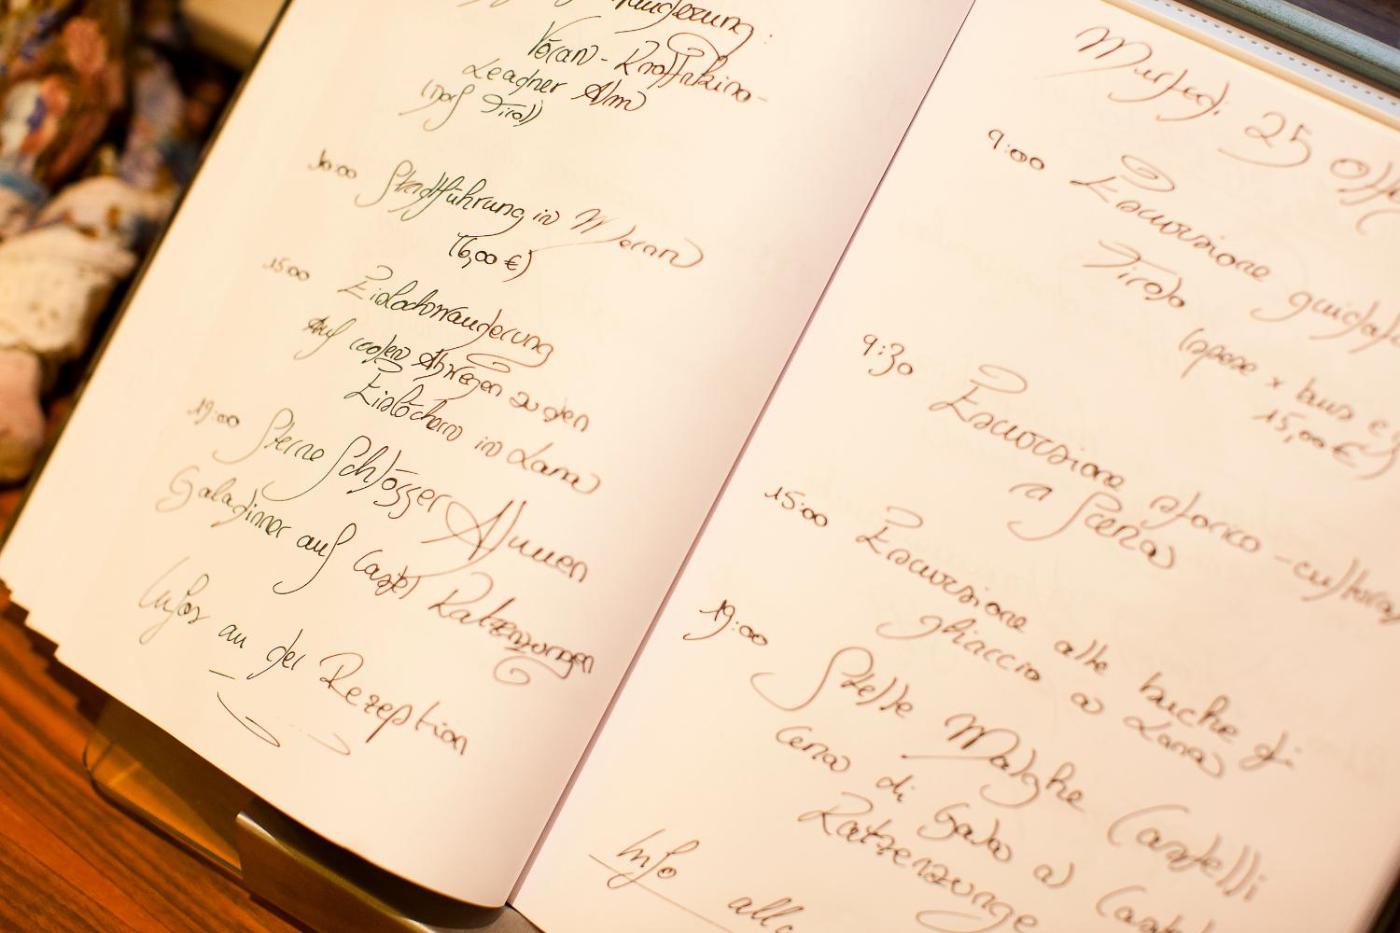 Vöran - Knottnkino-
Leadner Alm
(nof Tirol)
10:00 Stadtführung in Meran
(6,00 €)
15:00 Eislochwanderung
Auf coolen Abwegen zu den
Eislöchern in Lana
19:00 Sterne Schlösser Almen
Galadinner auf Castel Katzenzungen
Infos an der Rezeption
25
9:00 Escursione guidata
Tirolo
(spese x bus e
15,00 €)
9:30 Escursione storico-cultura
a Scena
15:00 Escursione alle buche di
ghiaccio a Lana
19:00 Stelle Malghe Castelli
Cena di Gala a
Katzenzunge
Info alla